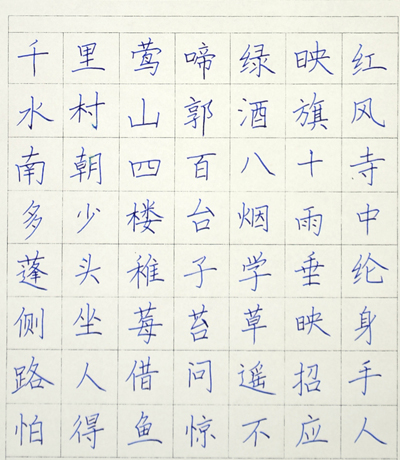 千里莺啼绿映红
水村山郭酒旗风
南朝四百八十寺
多少楼台烟雨中
蓬头稚子学垂纶
侧坐莓苔草映身
路人借问遥招手
怕得鱼惊不应人